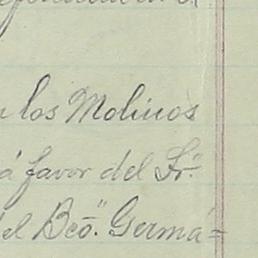 los Molinos
á favor del Sr.
el Bco. Germá=